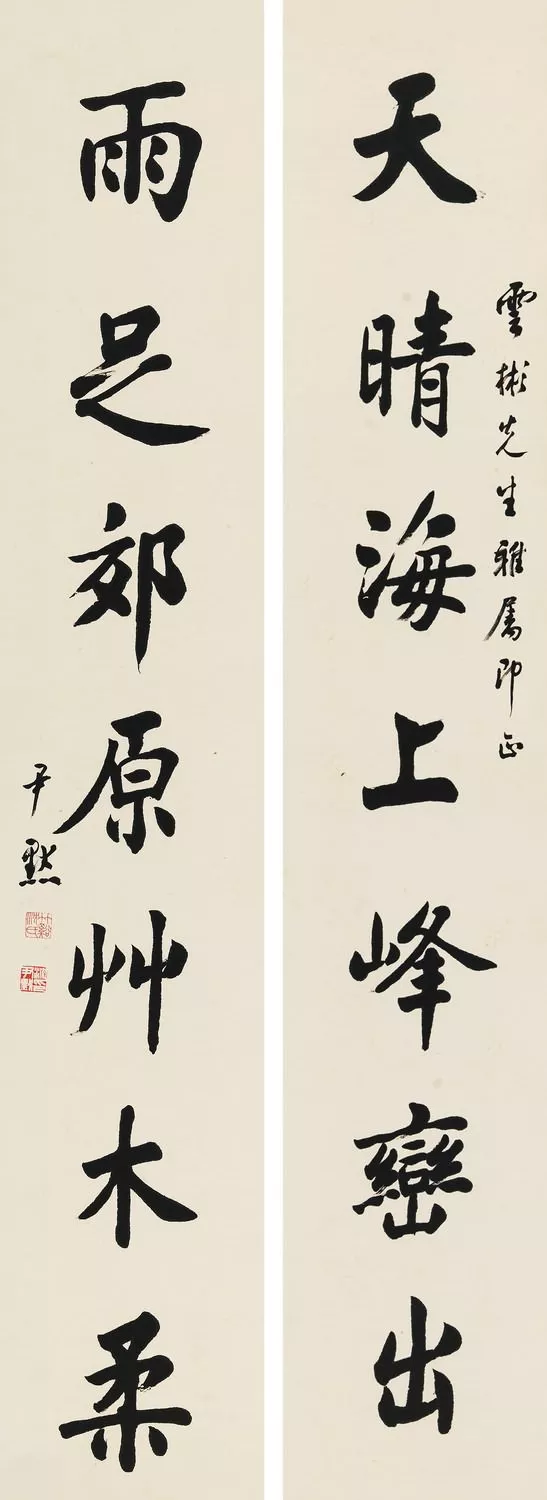 雲彬先生雅屬即正
天晴海上峰巒出
雨足郊原艸木柔
尹默